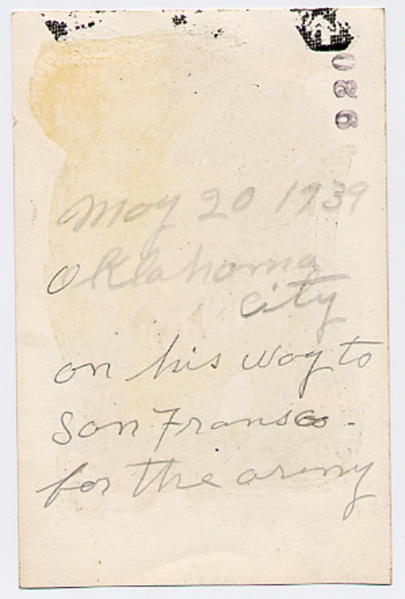 May 20 1939
Oklahoma
City
on his way to
San Fransco -
for the army